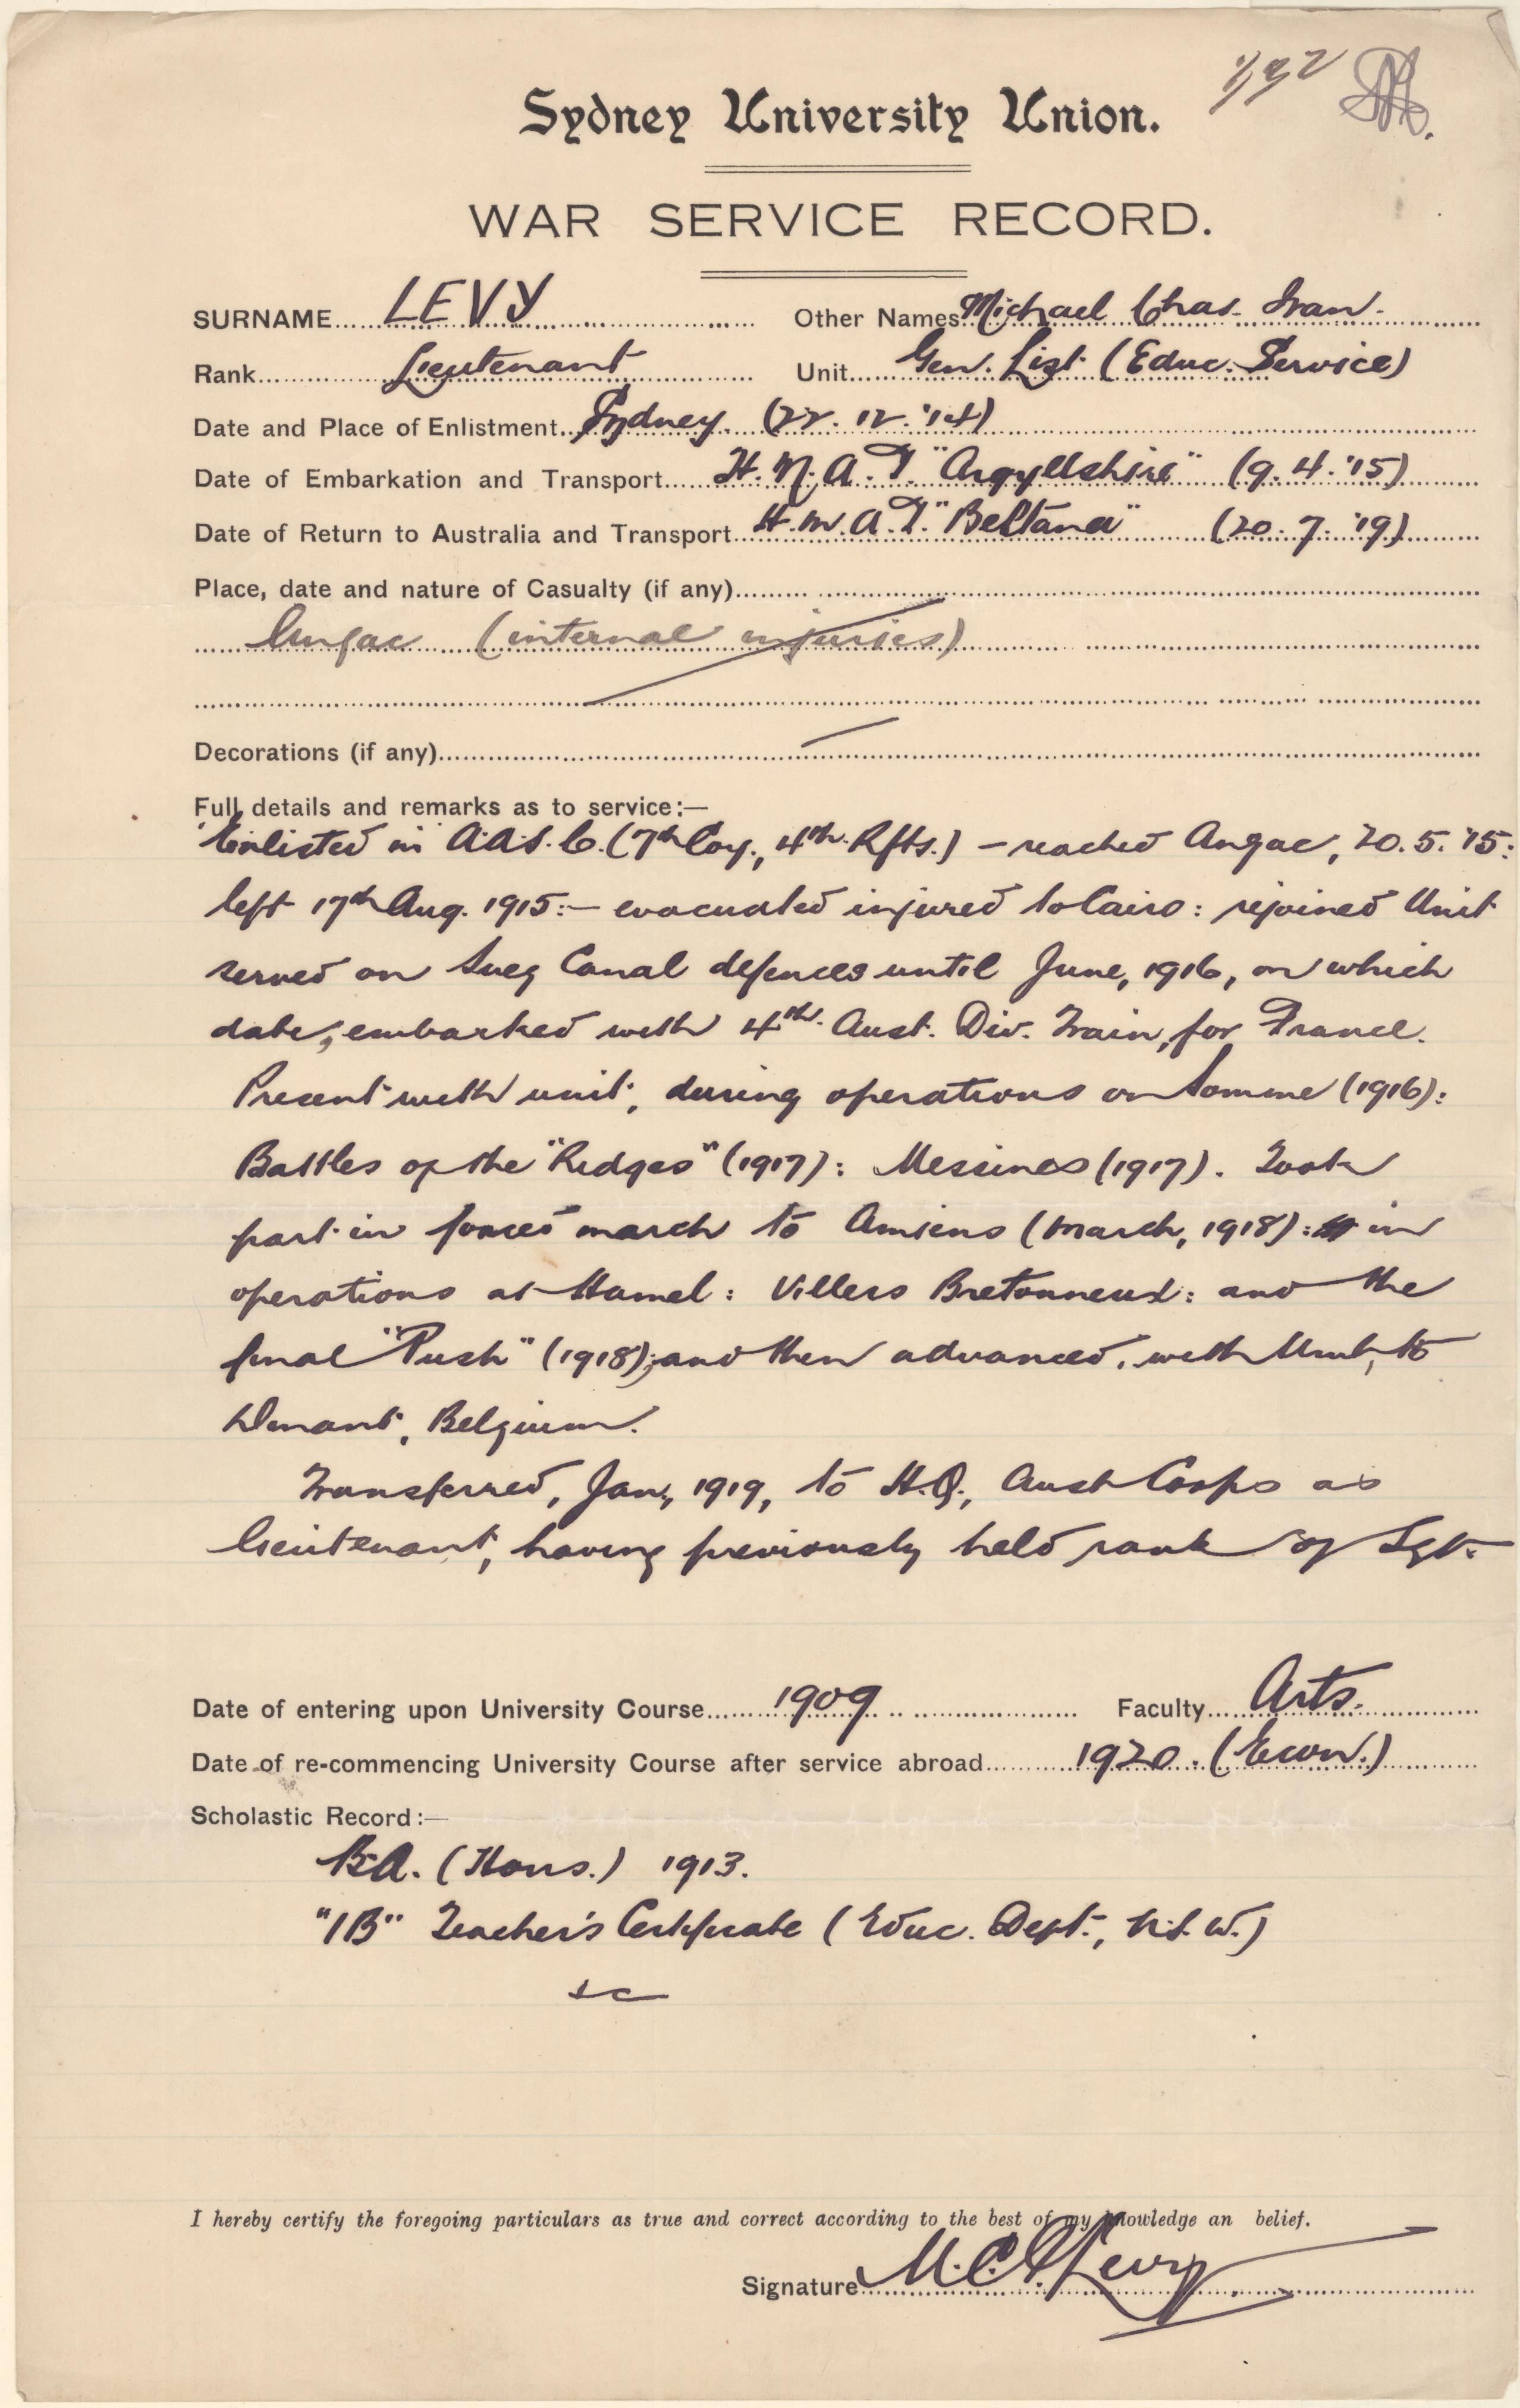 Sydney University Union.
WAR SERVICE RECORD.
SURNAME LEVY Other Names Michael Chas. Ivan.
Rank Lieutenant Unit Gen. List. (Educ. Service)
Date and Place of Enlistment Sydney. (22. 12. '14)
Date of Embarkation and Transport H. M. A. T. "Argyllshire" (9. 4. '15)
Date of Return to Australia and Transport H. M. A. T. "Beltana" (20. 7. '19)
Place, date and nature of Casualty (if any)
Anzac (internal injuries)
Decorations (if any)
Full details and remarks as to service:—
Enlisted in A.A.S.C. (7th Coy., 4th. Rfts.) – reached Anzac, 20. 5. '15:
left 17th Aug. 1915:– evacuated injured to Cairo: rejoined Unit
served on Suez Canal defences until June, 1916, on which
date, embarked with 4th. Aust. Div. Train, for France.
Present with unit, during operations on Somme (1916):
Battles of the "Ridges" (1917): Messines (1917). Took
part in forced march to Amiens (March, 1918): in
operations at Hamel: Villers Bretonneux: and the
final "Push" (1918); and then advanced, with Unit, to
Dinant, Belgium.
Transferred, Jan., 1919, to H.Q., Aust Corps as
lieutenant, having previously held rank of Sgt.
Date of entering upon University Course 1909 Faculty Arts.
Date of re-commencing University Course after service abroad 1920. (Econ.)
Scholastic Record:—
B.A. (Hons.) 1913.
"1B" Teacher's Certificate (Educ. Dept., N.S.W.)
I hereby certify the foregoing particulars as true and correct according to the best of my knowledge an belief.
Signature M. C. I. Levy